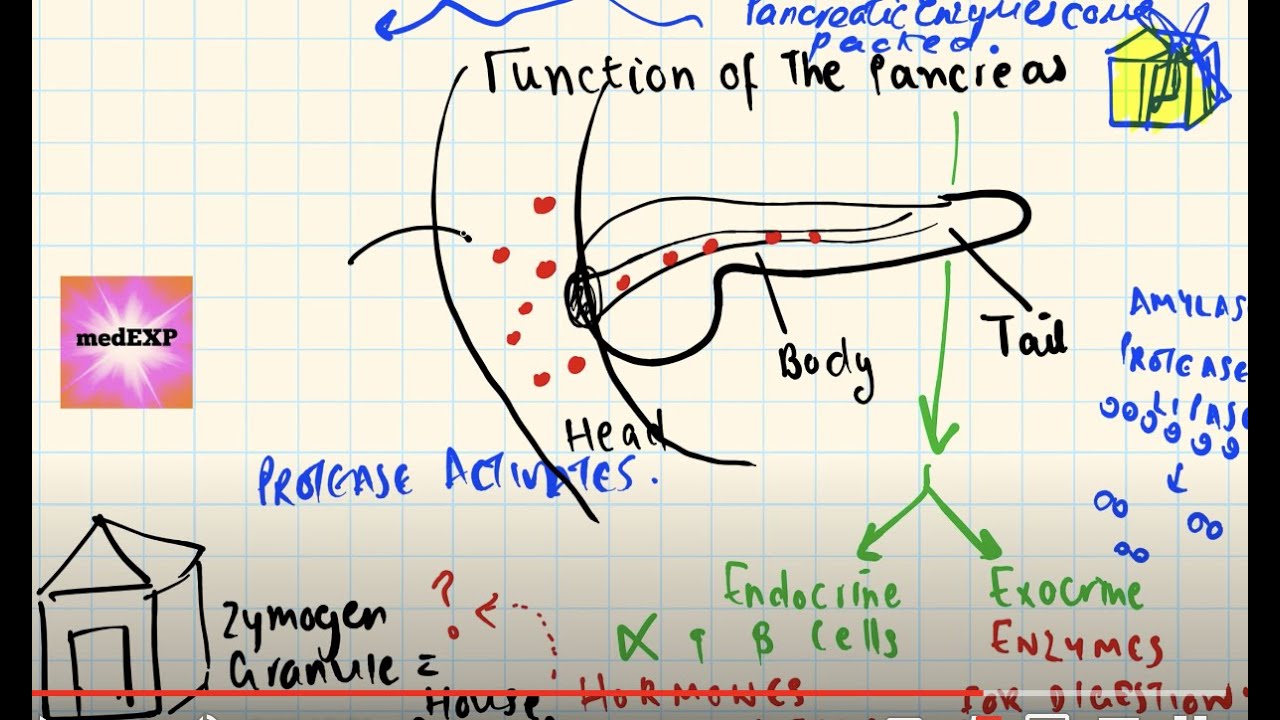 Pancreatic Enzymes come
packed.
Function of The Pancreas
medEXP
AMYLAS
PROTEASE
LIPASE
Tail
Body
Head
PROTEASE ACTIVATES.
Endocrine
Exocrine
α & β cells
ENZYMES
Zymogen
Granule =
House
?
HORMONES
FOR DIGESTION